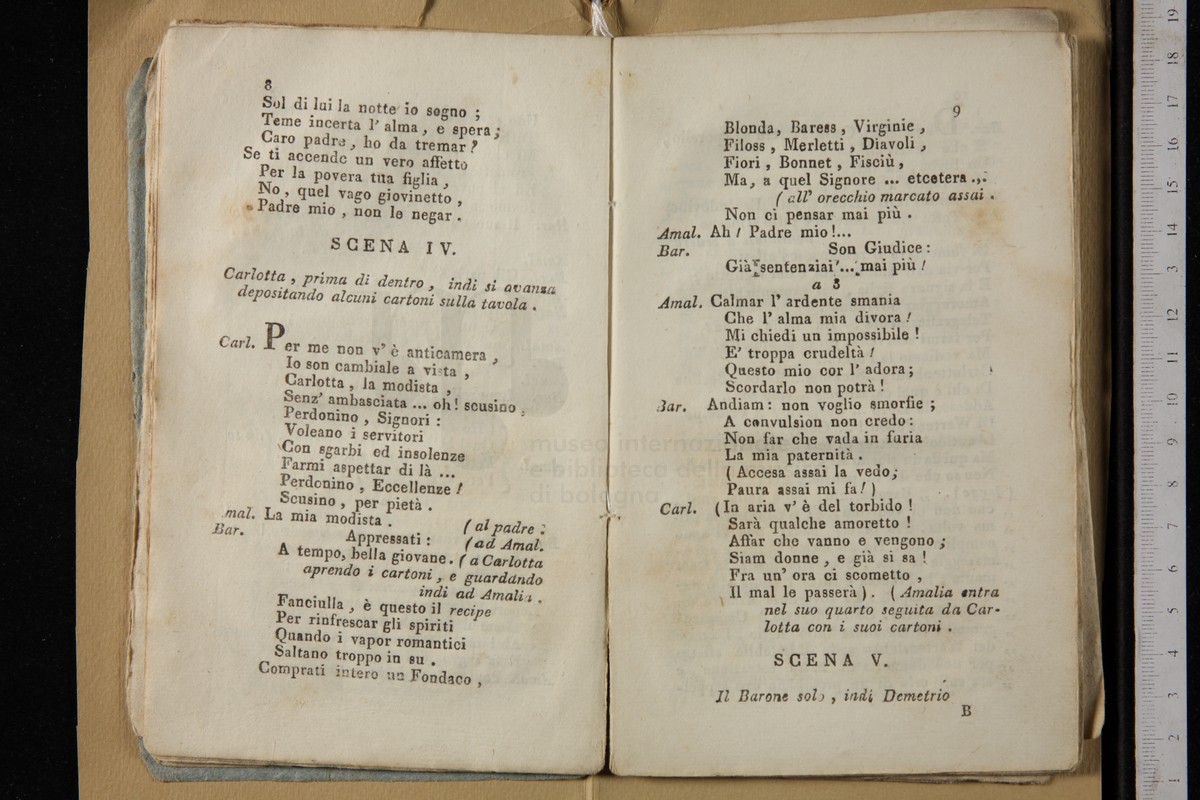 8
Sol di lui la notte io sogno ;
Teme incerta l' alma , e spera ;
Caro padre , ho da tremar ?
Se ti accende un vero affetto
Per la povera tua figlia ,
No , quel vago giovinetto ,
Padre mio , non le negar .
SCENA IV.
Carlotta , prima di dentro , indi si avanza
depositando alcuni cartoni sulla tavola .
Carl. Per me non v' è anticamera ,
Io son cambiale a vista ,
Carlotta , la modista ,
Senz' ambasciata ... oh ! scusino ,
Perdonino , Signori :
Voleano i servitori
Con sgarbi ed insolenze
Farmi aspettar di là ...
Perdonino , Eccellenze !
Scusino , per pietà .
mal. La mia modista . ( al padre :
Bar. Appressati : ( ad Amal.
A tempo, bella giovane . ( a Carlotta
aprendo i cartoni , e guardando
indi ad Amalia .
Fanciulla , è questo il recipe
Per rinfrescar gli spiriti
Quando i vapor romantici
Saltano troppo in su .
Comprati intero un Fondaco ,
9
Blonda, Baress , Virginie ,
Filoss , Merletti , Diavoli ,
Fiori , Bonnet , Fisciù ,
Ma, a quel Signore ... etcetera ...
( all' orecchio marcato assai .
Non ci pensar mai più .
Amal. Ah ! Padre mio !...
Bar. Son Giudice :
Già sentenziai' ... mai più !
a 3
Amal. Calmar l' ardente smania
Che l' alma mia divora !
Mi chiedi un impossibile !
E' troppa crudeltà !
Questo mio cor l' adora ;
Scordarlo non potrà !
Bar. Andiam : non voglio smorfie ;
A convulsion non credo :
Non far che vada in furia
La mia paternità .
( Accesa assai la vedo ;
Paura assai mi fa ! )
Carl. ( In aria v' è del torbido !
Sarà qualche amoretto !
Affar che vanno e vengono ;
Siam donne , e già si sa !
Fra un' ora ci scometto ,
Il mal le passerà ) . ( Amalia entra
nel suo quarto seguita da Car-
lotta con i suoi cartoni .
SCENA V.
Il Barone solo , indi Demetrio
B
museo internaz
e biblioteca della
di bologna